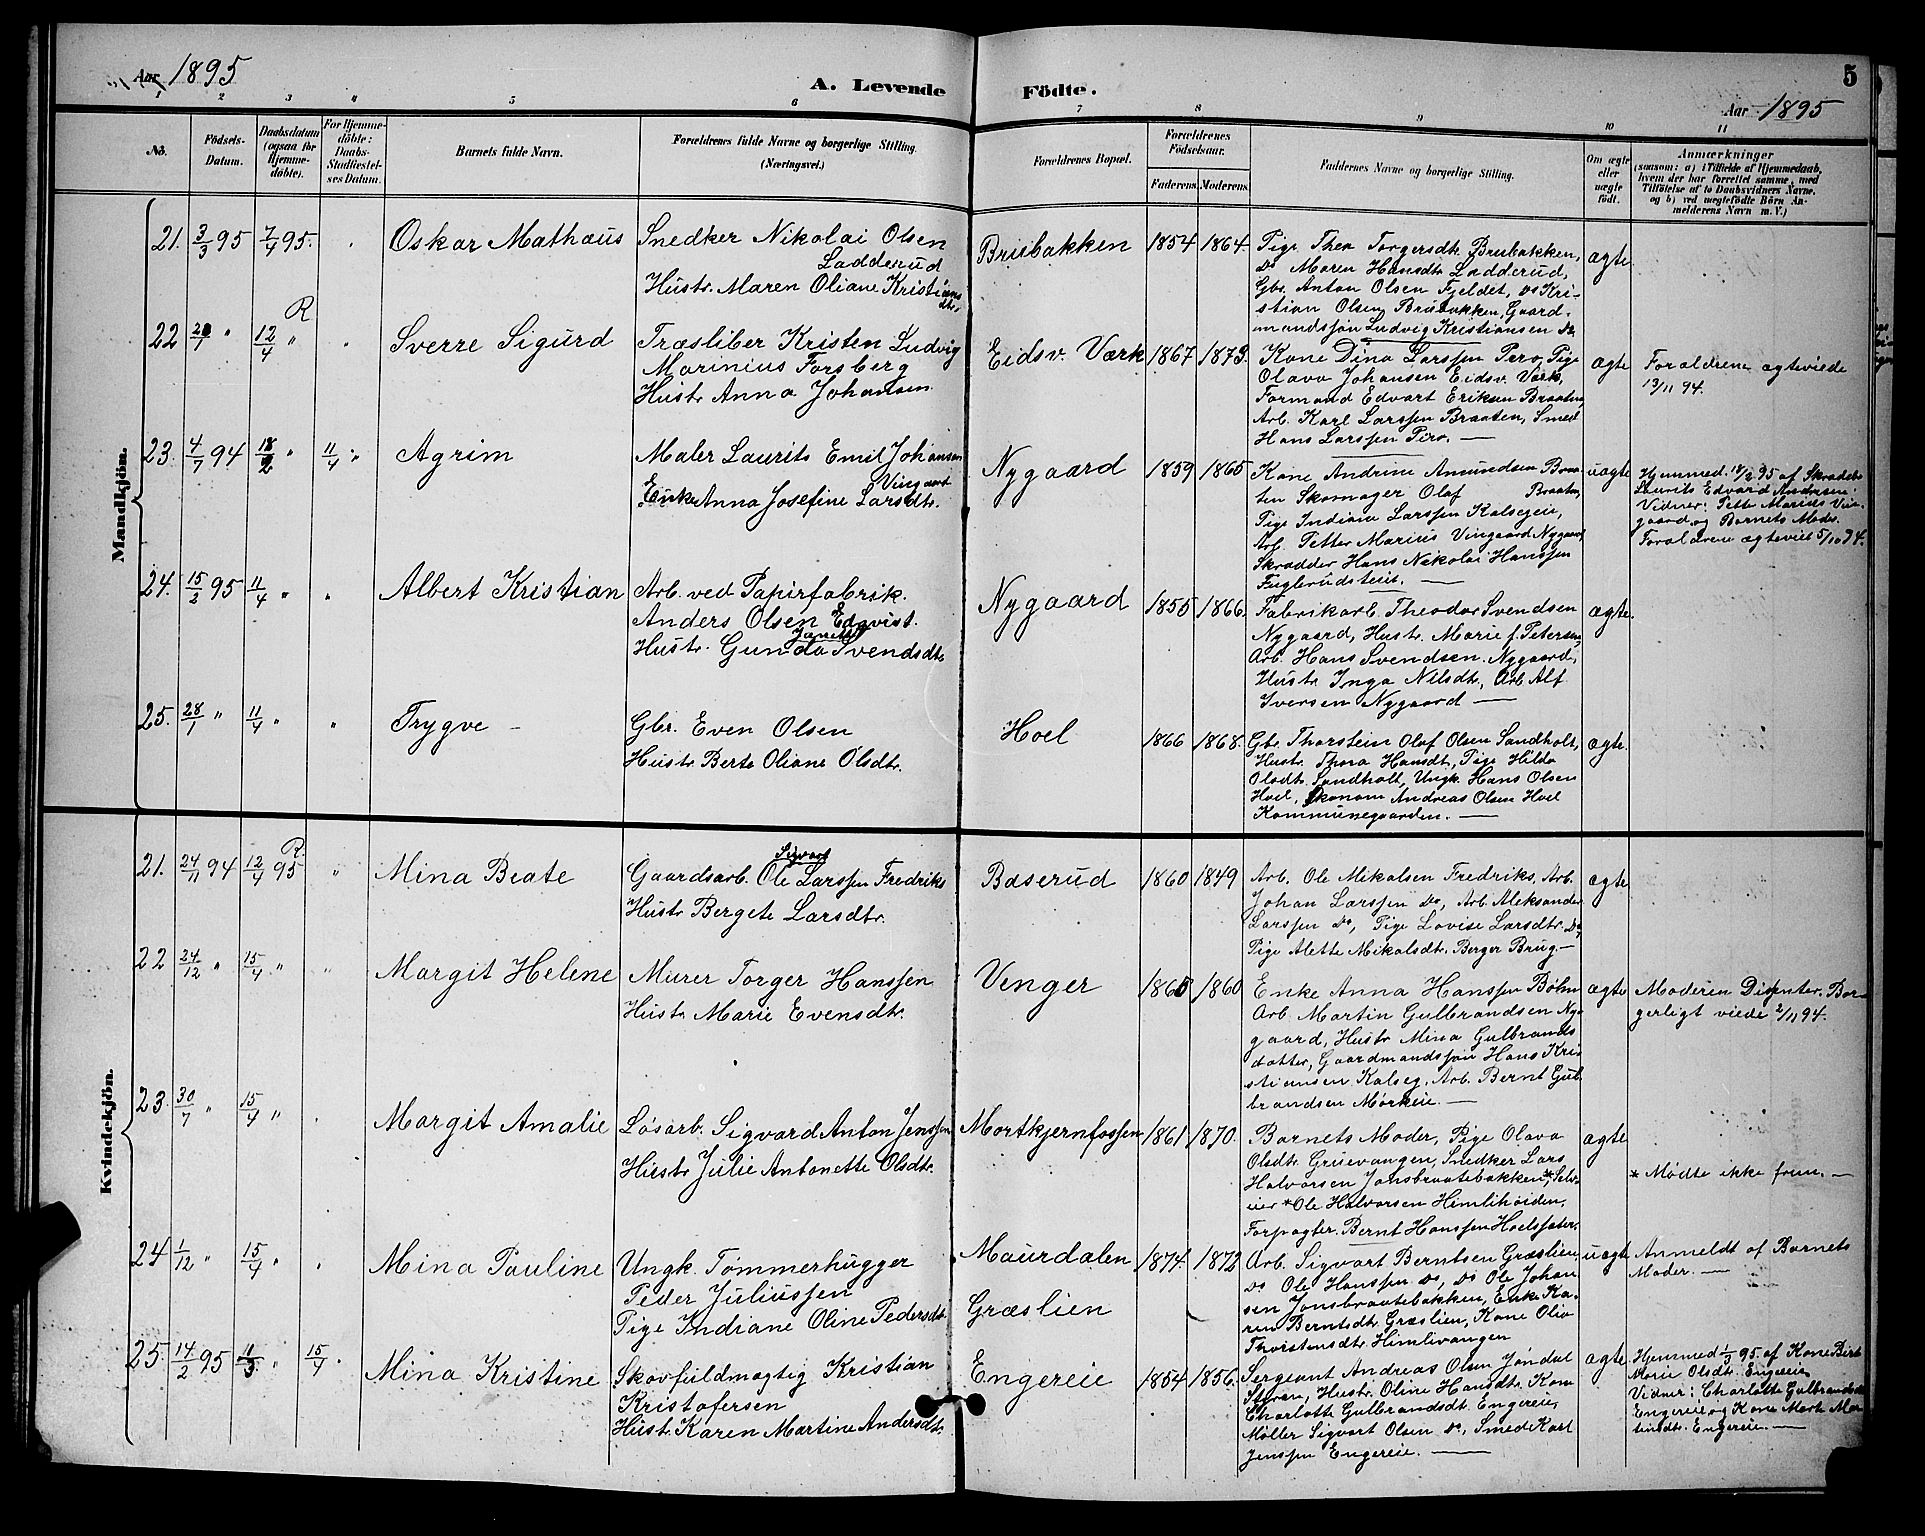 Aar 1895
A. Levende Födte.
5
Aar 1895
1 2 3 4 5 6 7 8 9 10 11
No.
Födsels-Datum.
Daabsdatum (ogsaa for Hjemme-döbte).
For Hjemme-döbte: Daabs-Stadfæstel-ses Datum.
Barnets fulde Navn.
Forældrenes fulde Navne og borgerlige Stilling.
(Næringsvei.)
Forældrenes Bopæl.
Forældrenes Födselsaar.
Faderens. Moderens.
Faddernes Navne og borgerlige Stilling.
Om ægte eller uægte födt.
Anmærkninger
(saasom: a) i Tilfælde af Hjemmedaab,
hvem der har forrettet samme, med
Tilföielse af to Daabsvidners Navne,
og b) ved uægtefödte Börn An-
melderens Navn m. V.)
Mandkjön.
21. 3/3 95 7/4 95. Oskar Mathæus
Snedker Nikolai Olsen
Ladderud
Hustr. Maren Oliane Kristians
dtr.
Brubakken 1854 1864.
Pige Thea Torgersdtr. Brubakken,
Do Maren Hansdtr. Ladderud,
Gbr. Anton Olsen Fjeldet, Do Kri-
stian Olsen Brubakken, Gaard-
mandssøn Ludvig Kristiansen Do
ægte.
R
22 12/4 " Sverre Sigurd
Træsliber Kristen Ludvig
Marinius Forsberg
Hustr. Anna Johansen
Eidsv. Værk 1867 1873.
Kone Dina Larssen Piro, Pige
Olava Johansen Eidsv. Værk,
Formand Edvart Eriksen Braaten
Arb. Karl Larssen Braaten, Smed
Hans Larssen Piro. —
ægte
Forældrene ægteviede
13/11 94.
23. 4/7 94 18/2 " 11/4 " Agrim
Maler Laurits Emil Johansen
Vingaard
Enke Anna Josefine Larsdtr.
Nygaard 1859 1865
Kone Andrine Amundsen Braa-
ten Skomager Olaf Braaten,
Pige Indiane Larssen Kalsegeie,
Arb. Petter Marius Vingaard Nygaard
Skrædder Hans Nikolai Hanssen
Fuglerudsteie. —
uægte
Hjemmed. 18/2 95 af Skrædder
Laurits Edvard Andresen
Vidner: Petter Marius Vin-
gaard og Barnets Moder.
Forældrene ægteviet 5/10 94.
24. 15/2 95 11/4 " " Albert Kristian
Arb. ved Papirfabrik.
Anders Olsen Edqvist.
Hustr. Gunda Svendsdtr.
Nygaard 1855 1866.
Fabrikarb. Theodor Svendsen
Nygaard, Hustr. Marie f. Petersen,
Arb. Hans Svendsen Nygaard,
Hustr. Inga Nilsdtr., Arb. Alf
Iversen Nygaard —
ægte.
25. 28/1 " 11/4 " " Trygve —
Gbr. Even Olsen
Hustr. Berte Oliane Olsdtr.
Hoel 1866 1868.
Gbr. Thorstein Olaf Olsen Sandholt,
Hustr. Thora Hansdtr., Pige Hilda
Olsdtr. Sandholt, Ungk. Hans Olsen
Hoel, Økonom Andreas Olsen Hoel
Kommunegaarden. —
ægte.
Kvindekjön.
R
21. 24/11 94 12/4 95 " Mina Beate
Sigvart
Gaardsarb. Ole Larssen Fredriks
Hustr. Bergete Larsdtr.
Baserud 1860 1849
Arb. Ole Mikalsen Fredriks, Arb.
Johan Larssen Do, Arb. Aleksander
Larssen Do, Pige Lovise Larsdtr. Do,
Pige Alette Mikalsdtr. Berger Brug —
ægte
22 24/12 " 15/4 " " Margit Helene
Murer Torger Hanssen
Hustr. Marie Evensdtr.
Venger 1865 1860
Enke Anna Hanssen Bøhn
Arb. Martin Gulbrandsen Ny-
gaard, Hustr. Mina Gulbrands
datter, Gaardmandssøn Hans Kri-
stiansen Kalseg, Arb. Bernt Gul-
brandsen Mørkeie. —
ægte
Moderen Dissenter. Bor-
gerligt viede 2/11 94.
23. 30/7 " 15/4 " Margit Amalie
Løsarb. Sigvard Anton Jenssen
Hustr. Julie Antonette Olsdtr.
Mortkjernfossen 1861 1870.
Barnets Moder, Pige Olava
Olsdtr. Gruevangen, Snedker Lars
Halvorsen Jonsbraatebakken*, Selv-
eier *Ole Halvorsen Himlihøiden,
Forpagter Bernt Hanssen Hoelssæter.
ægte
* Mødte ikke frem. —
24 1/12 " 15/4 " Mina Pauline
Ungk. Tømmerhugger
Peder Juliussen
Pige Indiane Oline Pedersdtr.
Maurdalen
Græslien
1874 1872
Arb. Sigvart Berntsen Græslien,
Do Ole Hanssen Do, Do Ole Johan
sen Jonsbraatebakken, Enke Ka-
ren Berntsdtr. Græslien, Kone Olia
Thorstensdtr. Himlivangen
uægte
Anmeldt af Barnets
Moder. —
25. 14/2 95 11/3 " 15/4 " Mina Kristine
Skovfuldmægtig Kristian
Kristofersen
Hustr. Karen Martine Andersdtr.
Engereie 1854 1856.
Sergeant Andreas Olsen Jøndal
Styren, Hustr. Oline Hansdtr. Kone
Charlotte Gulbrandsdtr. Engereie,
Møller Sigvart Olsen Do, Smed Karl
Jenssen Engereie. —
ægte
Hjemmed. 1/3 95. af Kone Birt
Marie Olsdtr. Engereie
Vidner: Charlotte Gulbrandsdtr.
Engereie og Kone Marte Mar-
tinsdtr. Engereie. —